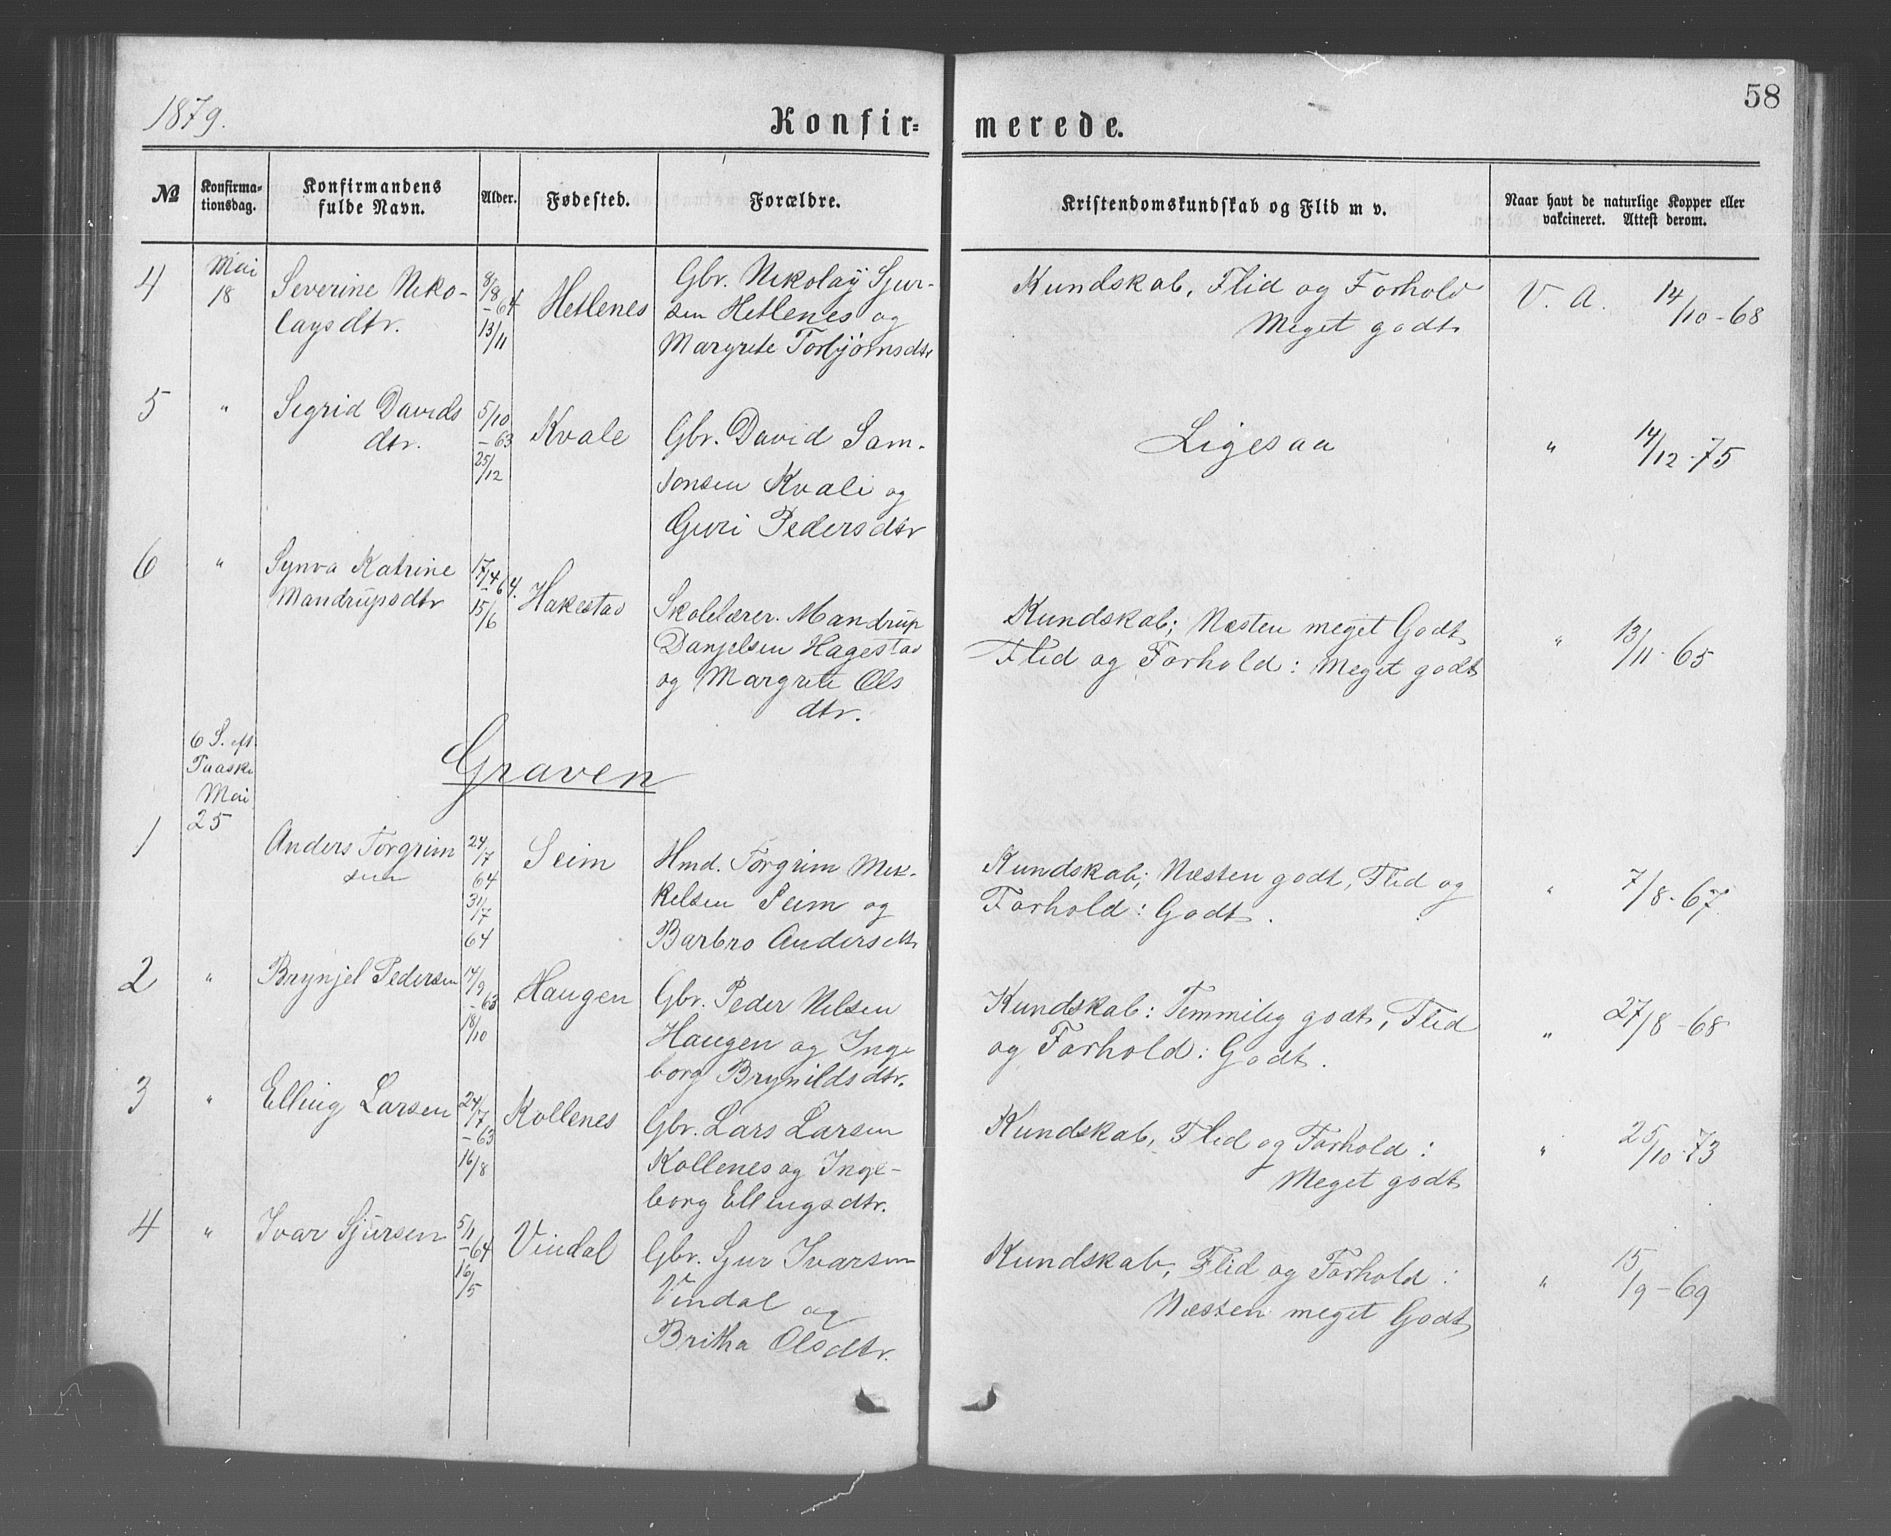 1879.
Konfir=
merede.
58
No
Konfirma-
tionsdag.
Konfirmandens
fulde Navn.
Alder.
Fødested.
Forældre.
Kristendomskundskab og Flid m v.
Naar havt de naturlige Kopper eller
vakcineret. Attest derom.
4
Mai
18
Severine Niko-
laysdtr.
8/8
-64
13/11
Hetlenes
Gbr. Nikolay Sjur-
sen Hetlenes og
Margrete Torbjørnsdtr
Kundskab, Flid og Forhold
Meget godt
V. A. 14/10-68
5
"
Sigrid Davids
dtr.
5/10
-63
25/12
Kvale
Gbr. David Sam-
sonsen Kvale og
Guri Pedersdtr
Ligesaa
" 14/12-75
6
"
Synva Katrine
Mandrupsdtr
17/4-64.
15/6
Hakestad
Skolelærer. Mandrup
Danjelsen Hagestad
og Margrete Ols
dtr.
Kundskab; Næsten meget Godt
Flid og Forhold: Meget godt
" 13/11-65
6 S. eft.
Paaske
Mai
25
Graven
1
Anders Torgrim
sen
24/7
64
31/7
64
Seim
Hmd. Torgrim Mik-
kelsen Seim og
Barbro Andersdtr
Kundskab; Næsten godt, Flid og
Forhold: Godt.
" 7/8-67
2
"
Brynjel Pedersen
14/9
-63
18/10
Haugen
Gbr. Peder Nilsen
Haugen og Inge
borg Brynildsdtr.
Kundskab: Temmilig godt, Flid
og Forhold: Godt.
" 27/8-68
3
"
Elling Larsen
24/7
-63
16/8
Kollenes
Gbr. Lars Larsen
Kollenes og Inge-
borg Ellingsdtr.
Kundskab, Flid og Forhold:
Meget godt
" 25/10-73
4
"
Ivar Sjursen
5/11
-64
16/5
Vindal
Gbr. Sjur Ivarsen
Vindal og
Britha Olsdtr.
Kundskab, Flid og Forhold:
Næsten meget Godt
" 15/9-69